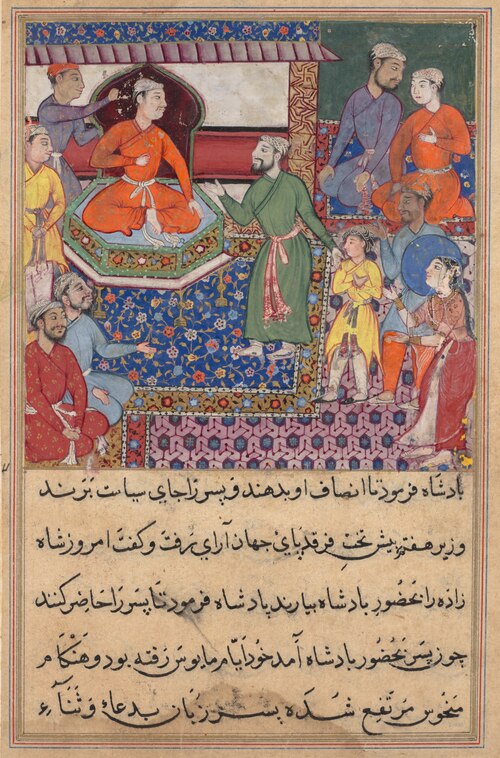 بادشاه فرمود تا انصاف او بدهند و پسر را جای سیاست برند
وزیر هفتم پیش تخت فرقد پای جهان آرای برفت و گفت امروز شاه
زاده را بحضور بادشاه بیارند بادشاه فرمود تا پسر را حاضر کنند
چون پسر بحضور بادشاه آمد خود ایام مایوس رفته بود و هنکام
منحوس مرتفع شده پسر زبان بدعاء و ثناء